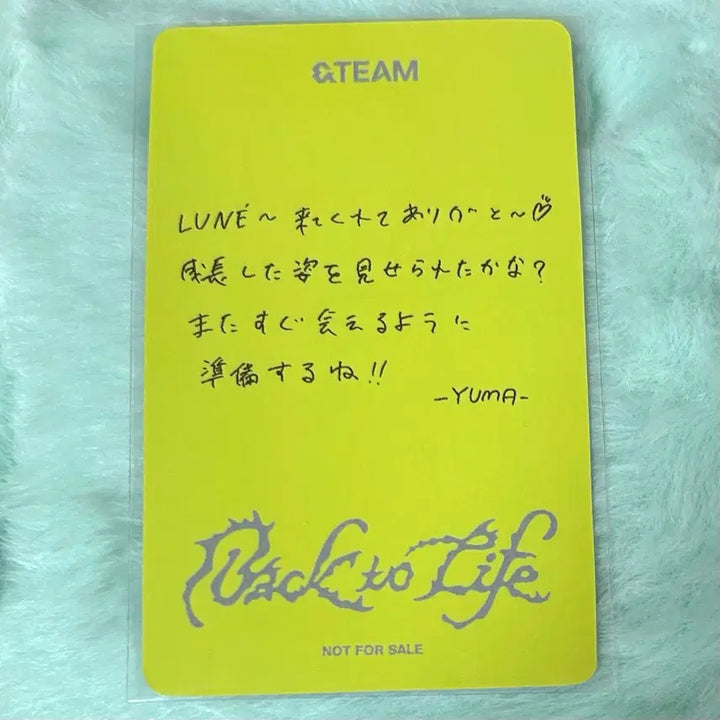 &TEAM
LUNÉ～ 来てくれてありがと～♡
成長した姿を見せられたかな？
またすぐ会えるように
準備するね!!
-YUMA-
Back to Life
NOT FOR SALE